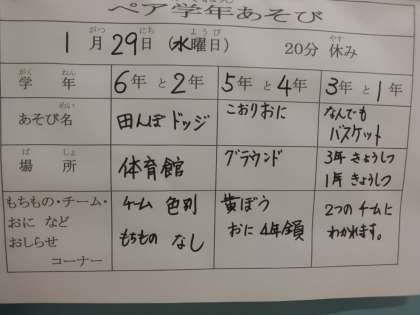 ペア学年あそび
1月29日(水曜日) 20分休み
学年 6年と2年 5年と4年 3年と1年
あそび名 田んぼドッジ こおりおに なんでも
バスケット
場所 体育館 グラウンド 3年きょうしつ
1年きょうしつ
もちもの・チーム・ チーム 色別 黄ぼう 2つのチームに
おに など もちもの なし おに 4年 わかれます。
おしらせ
コーナー